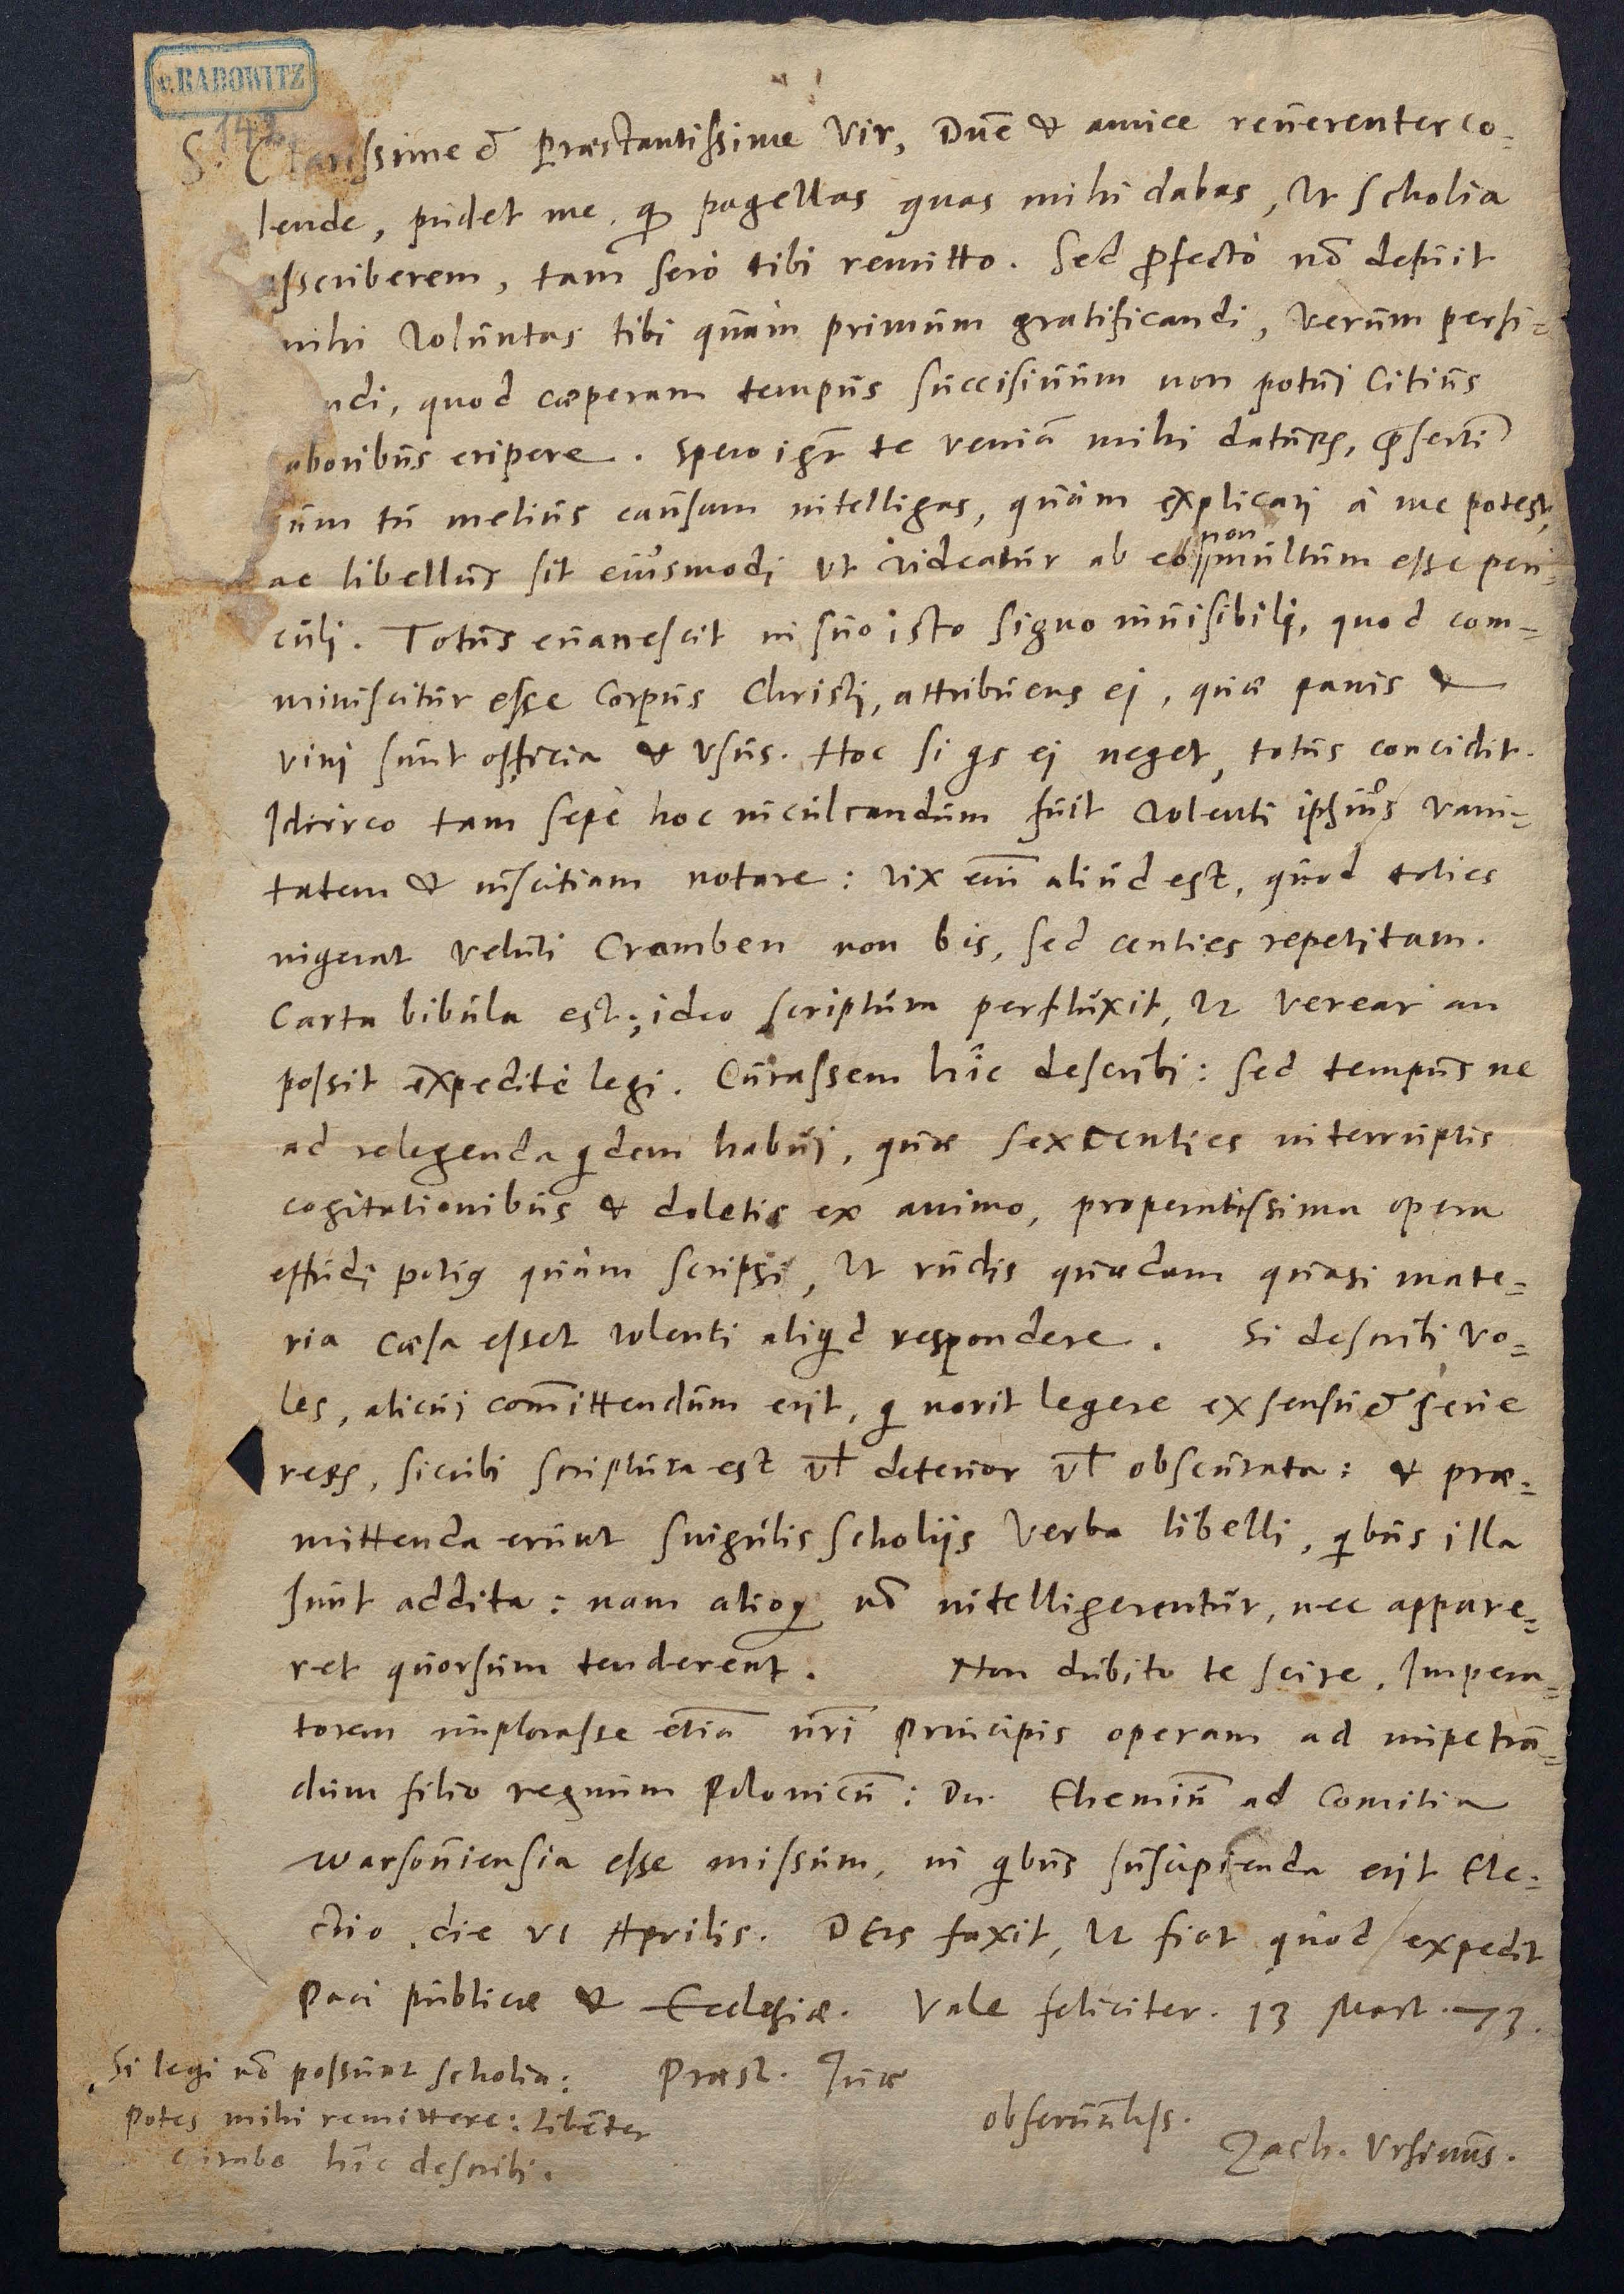 v. RADOWITZ
142
S. Clarissime & Præstantissime Vir, Dn̄e & amice reuerenter co-
lende, pudet me, q̄ pagellas quas mihi dabas, vt scholia
asscriberem, tam serò tibi remitto. Sed ꝓfectò nō defuit
mihi voluntas tibi quàm primùm gratificandi, verùm perfi-
ndi, quod cœperam tempus succisiuum non potui citius
laboribus eripere. Spero igr̄ te veniā mihi daturū, p̄sertī
cum tu melius causam intelligas, quàm explicari à me potest,
ac libellus sit eiusmodi vt videatur ab eo non multum esse peri-
culi. Totus euanescit in suo isto signo inuisibili, quod com-
miniscitur esse Corpus Christi, attribuens ei, quæ panis &
vini sunt officia & vsus. Hoc si q̄s ei neget, totus concidit.
Idcirco tam sepè hoc inculcandum fuit volenti ipsius vani-
tatem & inscitiam notare: vix em̄ aliud est, quod toties
ingerat veluti Cramben non bis, sed centies repetitam.
Carta bibula est, ideo scriptura perfluxit, vt verear an
possit expeditè legi. Curassem hîc describi: sed tempus ne
ad relegenda q̄dem habui, quæ sexcenties interruptis
cogitationibus & deletis ex animo, properatissima opera
effudi potiꝰ quàm scripsi, vt rudis quædam quasi mate-
ria cæsa esset volenti aliq̄d respondere. Si describi vo-
les, alicui com̄ittendum erit, q̄ norit legere ex sensu & serie
rerū, sicubi scriptura est vł deterior vł obscurata: & præ-
mittenda erunt singulis scholiis verba libelli, q̄bus illa
sunt addita: nam alioq̄ nō intelligerentur, nec appare-
ret quorsum tenderent. Non dubito te scire, Impera-
torem implorasse etiā nr̄i Principis operam ad impetrā-
dum filio regnum Polonicū: Dn. Ehemiū ad Comitia
Warsouiensia esse missum, in q̄bus suscipienda erit Ele-
ctio die VI Aprilis. DEus faxit, vt fiat quod expedit
Paci publicæ & Ecclesiæ. Vale feliciter. 13 Mart. 73.
Si legi nō possunt scholia: Præst. Tuæ
potes mihi remittere: libēter
curabo hîc describi.
obseruātiss.
Zach. Vrsinus.